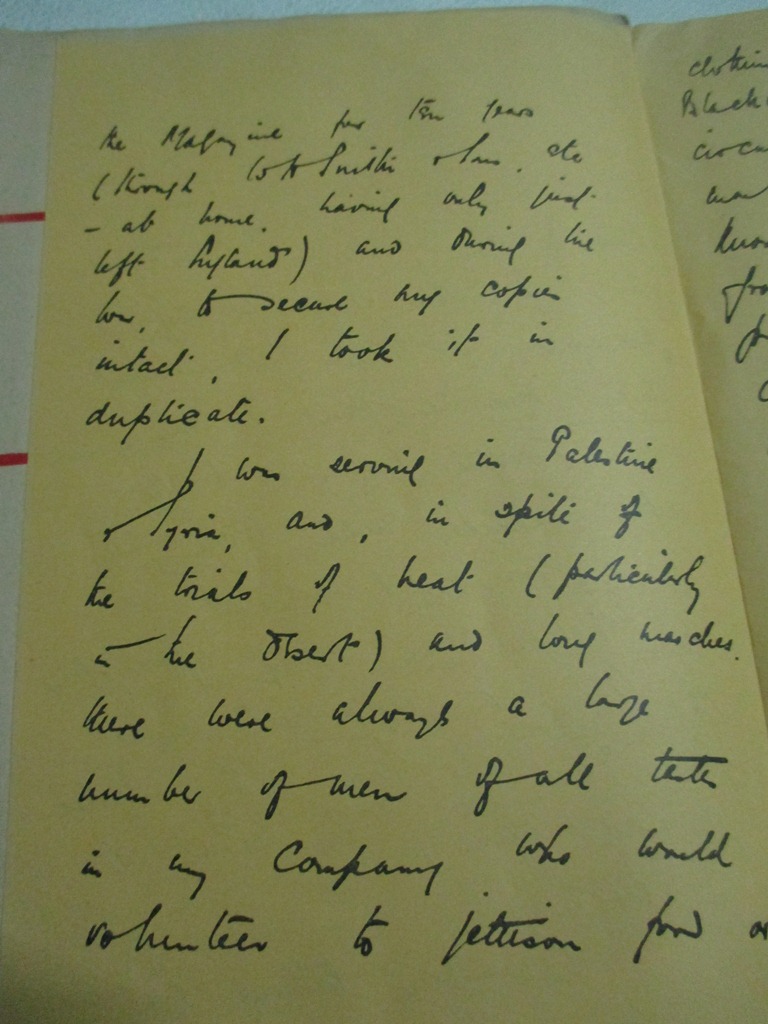 the Magazine for ten years
(through W H Smith & Sons, etc
- at home, having only just
left England) and during the
war, to secure my copies
intact, I took it in
duplicate.
I was serving in Palestine
& Syria, and, in spite of
the trials of heat (particularly
in the desert) and long marches,
there were always a large
number of men of all tastes
in my Company who would
volunteer to jettison food or
Black